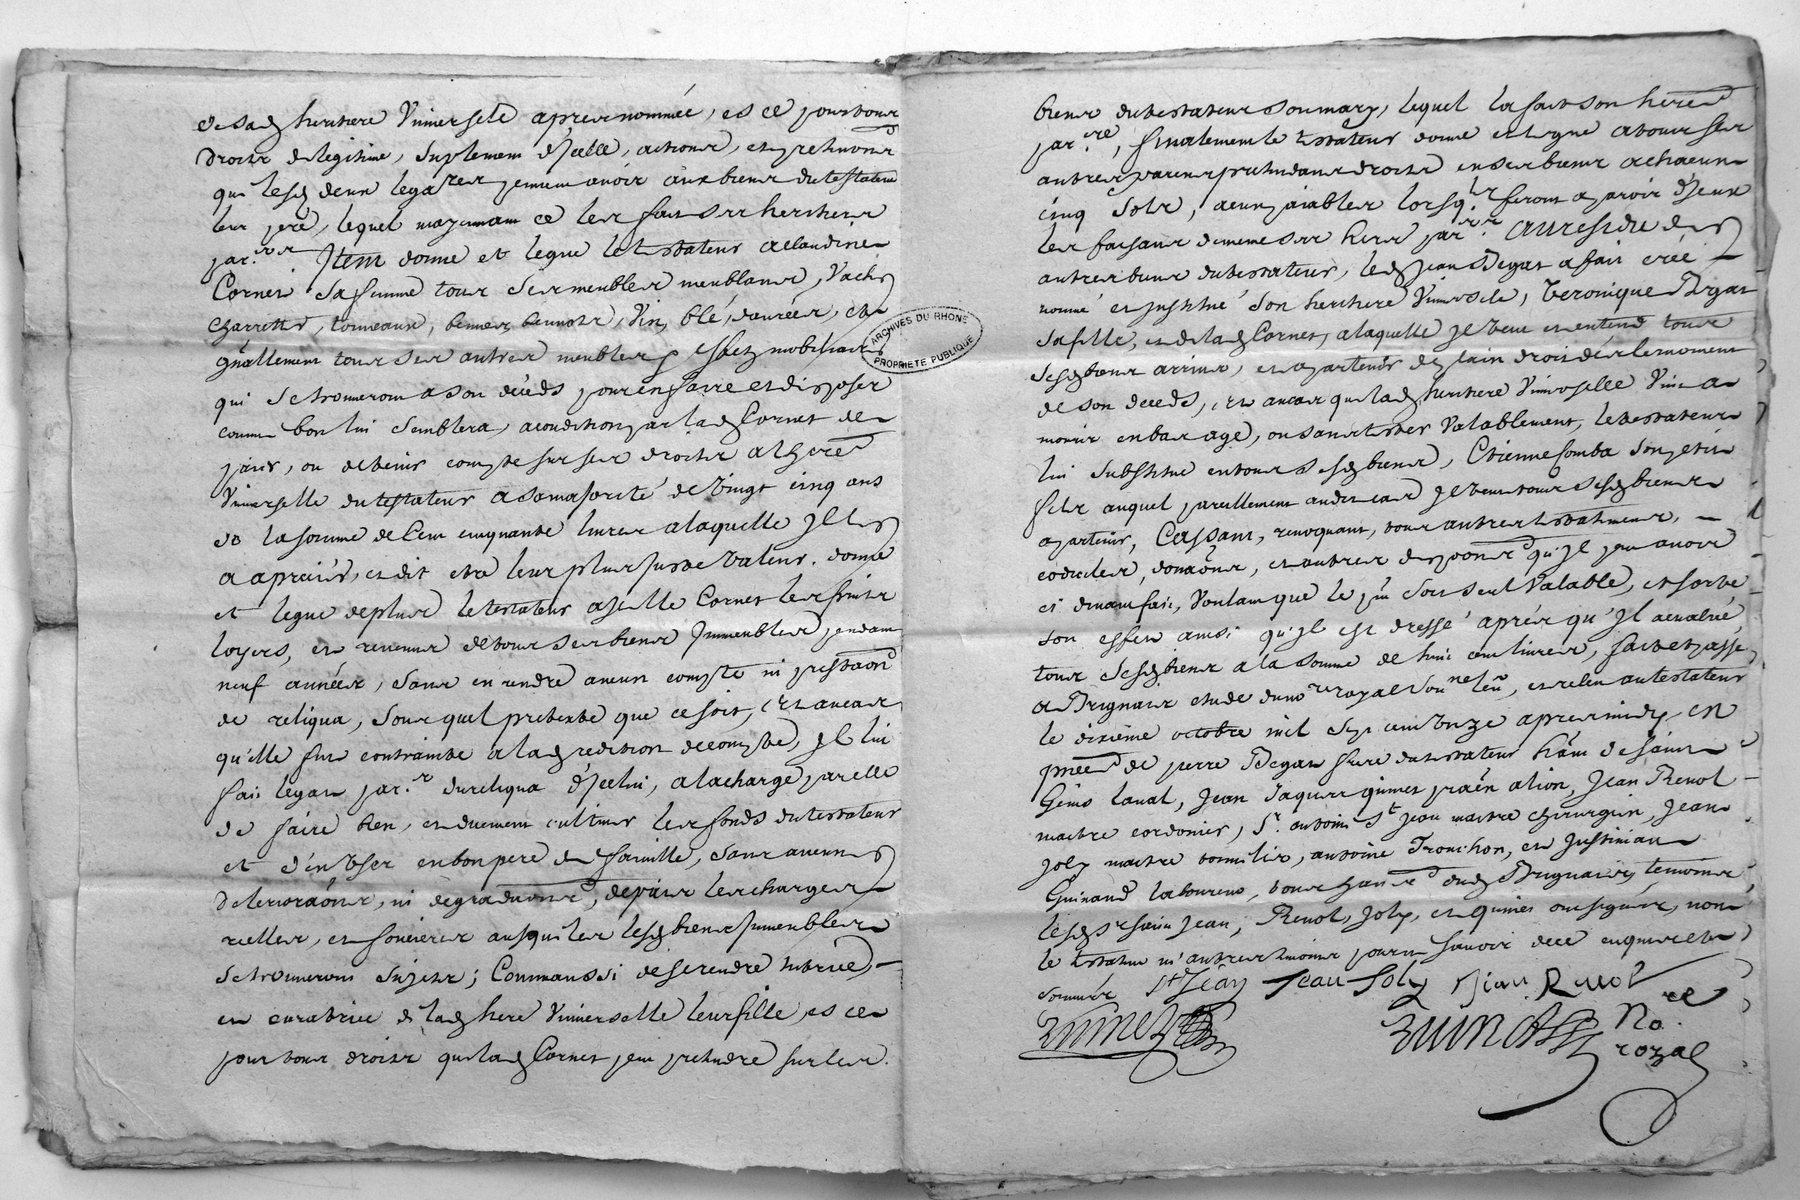 de sad heritiere Universele apres nommée, es ce pour tous
droits de legitime, suplement d'jcelle, actions, et pretentions
que lesd deux legares peuvent avoir aux biens du testateur
leur pere, lequel moyennant ce les fait ses heritiers
par.rs Item donne et legue le testateur a Claudine
Cornet sa femme tous ses meubles meublans, Vaches
charrettes, tonneaux, bennes bennots, Vin, blé, danrées, et
gnallement tous ses autres meubles et effets mobiliairs
qui se trouveront a son déceds pour en faire et disposer
comme bon lui semblera, a condition par lad Cornet de
païer, ou de tenir compte sur ses droits a lh ere
Universelle du testateur a sa majorité de Vingt cinq ans
de la somme de Cent cinquante livres a laquelle Jl les
a apreciés, et dit etre leur plus juste Valeur. donne
et legue de plus le testateur a jcelle Cornet les fruits
loyers, et revenus de tous ses biens Jmmeubles pendant
neuf années, sans en rendre aucun compte ni prestaon
de reliqua, sous quel pretexte que ce soit, Et au cas
qu'elle fut contrainte a lad redition de compte, Jl lui
fait legat par.r du reliqua d'Jcelui, a la charge par elle
de faire bien, et duement cultiver les fonds du testateur
et d'en User en bon pere de famille, sans aucunes
deterioraons, ni degradations, de païer les charges
reelles, et foncieres ausquelles lesd biens Jmmeubles
se trouveront sujets; Comm'aussi de se rendre tutrice,
et curatrice de lad here Universelle leur fille, es ce
pour tous droits que lad Cornet peut pretendre sur les
ARCHIVES DU RHONE
PROPRIETE PUBLIQUE
biens du testateur son mary, lequel la fait son here
par.re, finalement le testateur donne et legue a tous ses
autres parens pretendans droits en ses biens a chacun
cinq sols, a eux païables lorsq.ls feront aparoir d'Jceux
les faisant de meme ses hers par.rs. Au residu des
autres biens du testateur, led Jean Degas a fait creé
nommé et Jnstitué son heritiere Universele, Veronique Degas
sa fille, et de lad Cornet, a laquelle Jl veut et entend tous
sesd biens arriver, et apartenir de plain droit dés le moment
de son deceds, Et au cas que lad heritiere Universelle Vint a
mourir en bas age, ou sans tester Valablement, le testateur
lui substitue en tous sesd biens, Etienne Comba son petit
fils auquel pareillement audit cas Jl veut tous sesd biens
apartenir, Cassant, revoquant, tous autres testamens,
codiciles, donaons, et autres dispoons qu'Jl peut avoir
ci devant fait, Voulant que le pnt soit seul Valable, et sorte
son effet ainsi qu'Jl est dressé aprés qu'Jl a evalué
tous sesd biens a la somme de huit cent livres, fait et passé
a Brignais etude du no.re royal sou.né leu, et releu au testateur
le dixieme octobre mil sept cent onze apres midy en
pnce de pierre Degas frere du testateur hant de Saint
Genis laval, Jean Jaques quimet prâen a lion, Jean Revol
maitre cordonier, Sr. antoine St Jean maitre chirurgien, Jean
Joly maitre tonnelier, antoine Tronchon, et Justinian
Guinand laboureur, tous hans dud Brignais, temoins
lesd Srs Saint Jean, Revol, Joly, et Quimet ont signés, non
le testateur ni autres temoins pour ne savoir de ce enquis et
sommés St Jean Jean Joly Jean Revol
No.re
royal